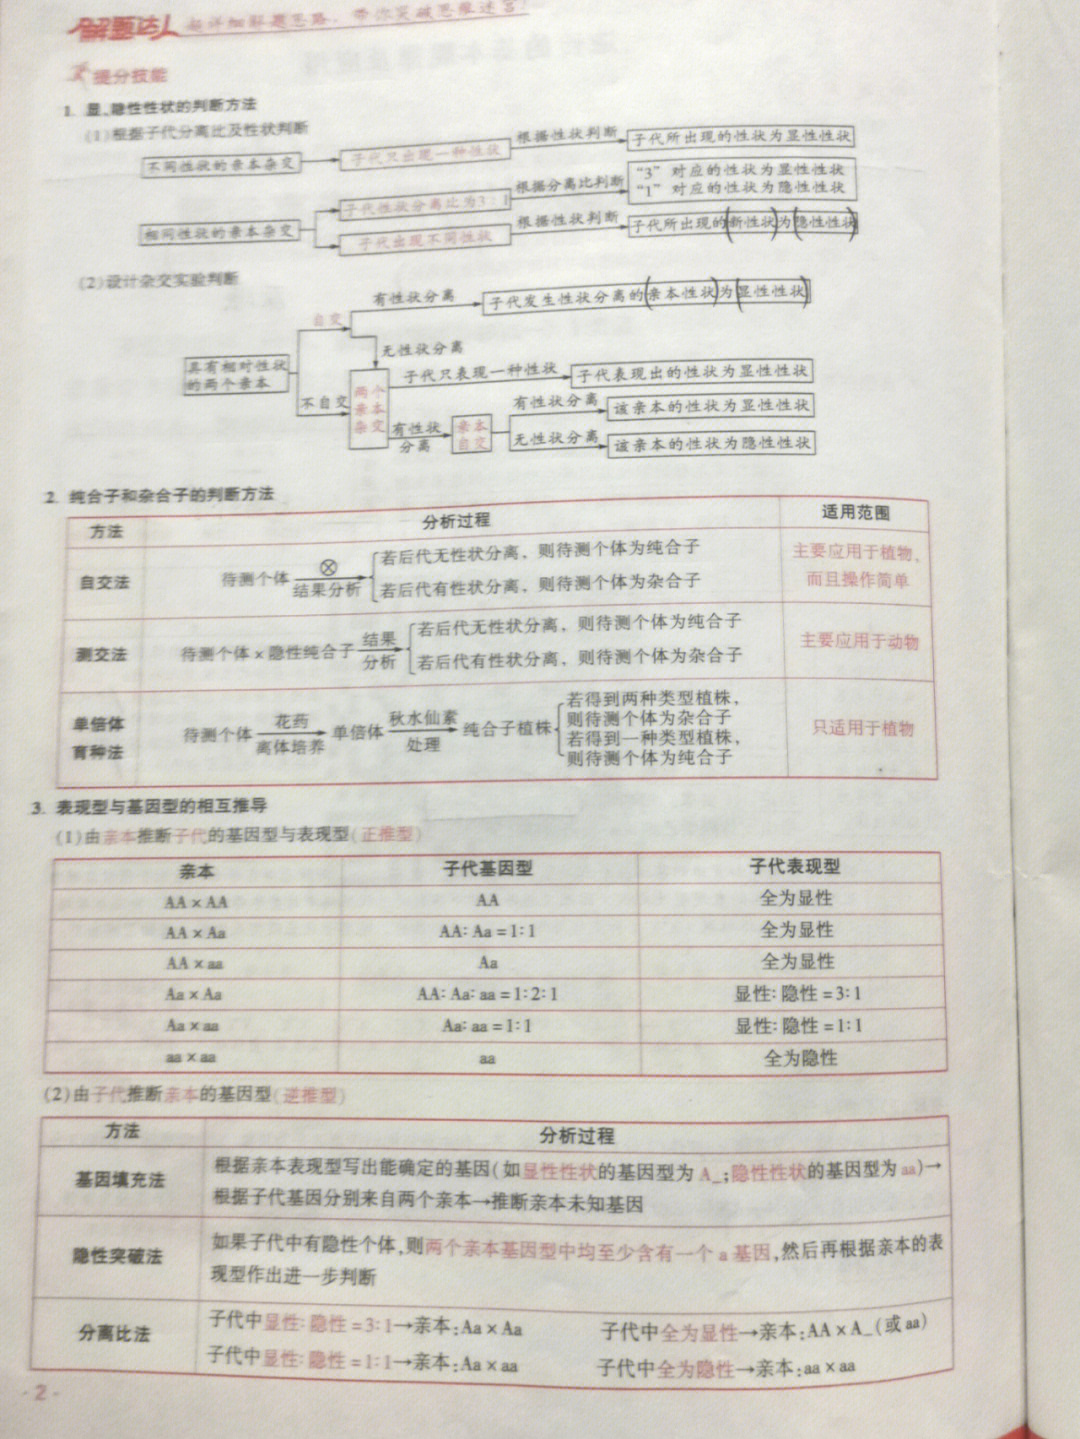 解题达人 超详细解题思路，带你突破思维迷宫！
提分技能
1. 显、隐性性状的判断方法
(1)根据子代分离比及性状判断
不同性状的亲本杂交 子代只出现一种性状 根据性状判断 子代所出现的性状为显性性状
相同性状的亲本杂交 子代性状分离比为3:1 根据分离比判断 “3”对应的性状为显性性状
“1”对应的性状为隐性性状
子代出现不同性状 根据性状判断 子代所出现的新性状为隐性性状
(2)设计杂交实验判断
具有相对性状
的两个亲本
自交 有性状分离 子代发生性状分离的亲本性状为显性性状
无性状分离
不自交
两个
亲本
杂交
子代只表现一种性状 子代表现出的性状为显性性状
有性状
分离
亲本
自交
有性状分离 该亲本的性状为显性性状
无性状分离 该亲本的性状为隐性性状
2. 纯合子和杂合子的判断方法
方法 分析过程 适用范围
自交法 待测个体 ⊗ 结果分析
若后代无性状分离，则待测个体为纯合子
若后代有性状分离，则待测个体为杂合子
主要应用于植物，
而且操作简单
测交法 待测个体×隐性纯合子 结果
分析
若后代无性状分离，则待测个体为纯合子
若后代有性状分离，则待测个体为杂合子
主要应用于动物
单倍体
育种法
待测个体 花药
离体培养
单倍体 秋水仙素
处理
纯合子植株
若得到两种类型植株，
则待测个体为杂合子
若得到一种类型植株，
则待测个体为纯合子
只适用于植物
3. 表现型与基因型的相互推导
(1)由亲本推断子代的基因型与表现型(正推型)
亲本 子代基因型 子代表现型
AA×AA AA 全为显性
AA×Aa AA:Aa=1:1 全为显性
AA×aa Aa 全为显性
Aa×Aa AA:Aa:aa=1:2:1 显性:隐性=3:1
Aa×aa Aa:aa=1:1 显性:隐性=1:1
aa×aa aa 全为隐性
(2)由子代推断亲本的基因型(逆推型)
方法 分析过程
基因填充法 根据亲本表现型写出能确定的基因(如显性性状的基因型为A_;隐性性状的基因型为aa)→
根据子代基因分别来自两个亲本→推断亲本未知基因
隐性突破法 如果子代中有隐性个体,则两个亲本基因型中均至少含有一个a基因,然后再根据亲本的表
现型作出进一步判断
分离比法 子代中显性:隐性=3:1→亲本:Aa×Aa 子代中全为显性→亲本:AA×A_(或aa)
子代中显性:隐性=1:1→亲本:Aa×aa 子代中全为隐性→亲本:aa×aa
·2·